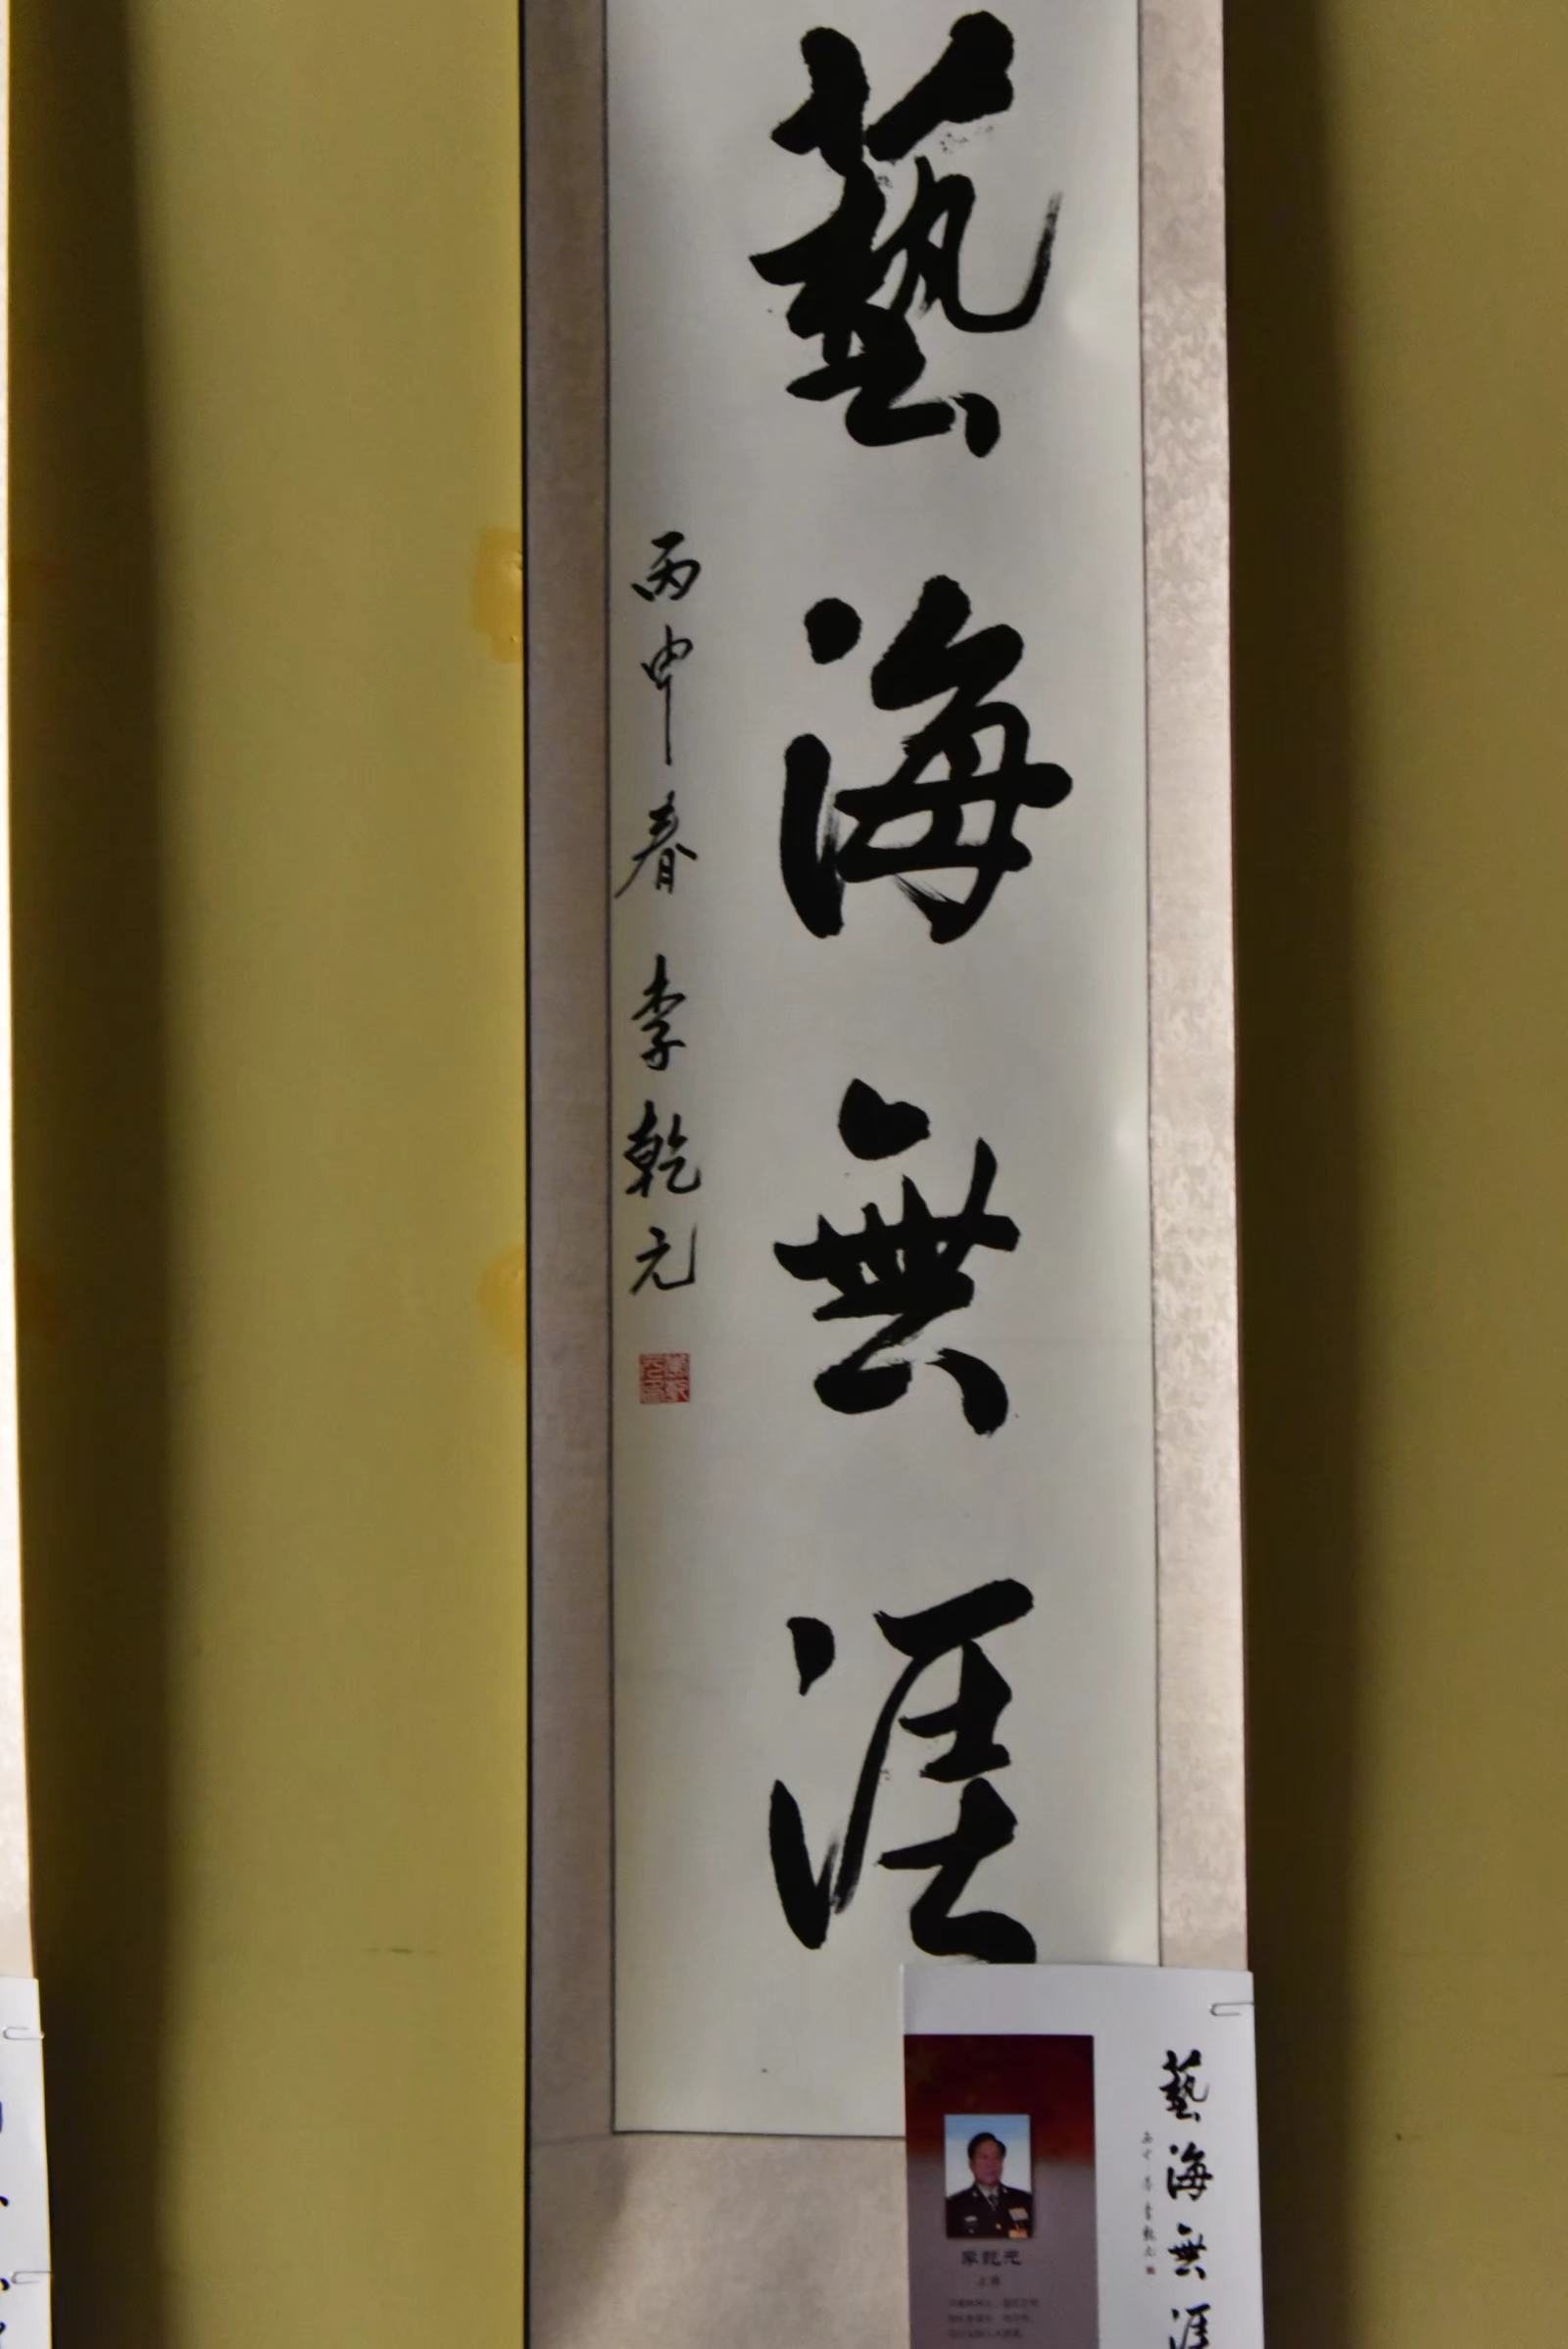 藝海無涯
丙申春 李乾元
藝海無涯
丙申春李乾元
李乾元
上将